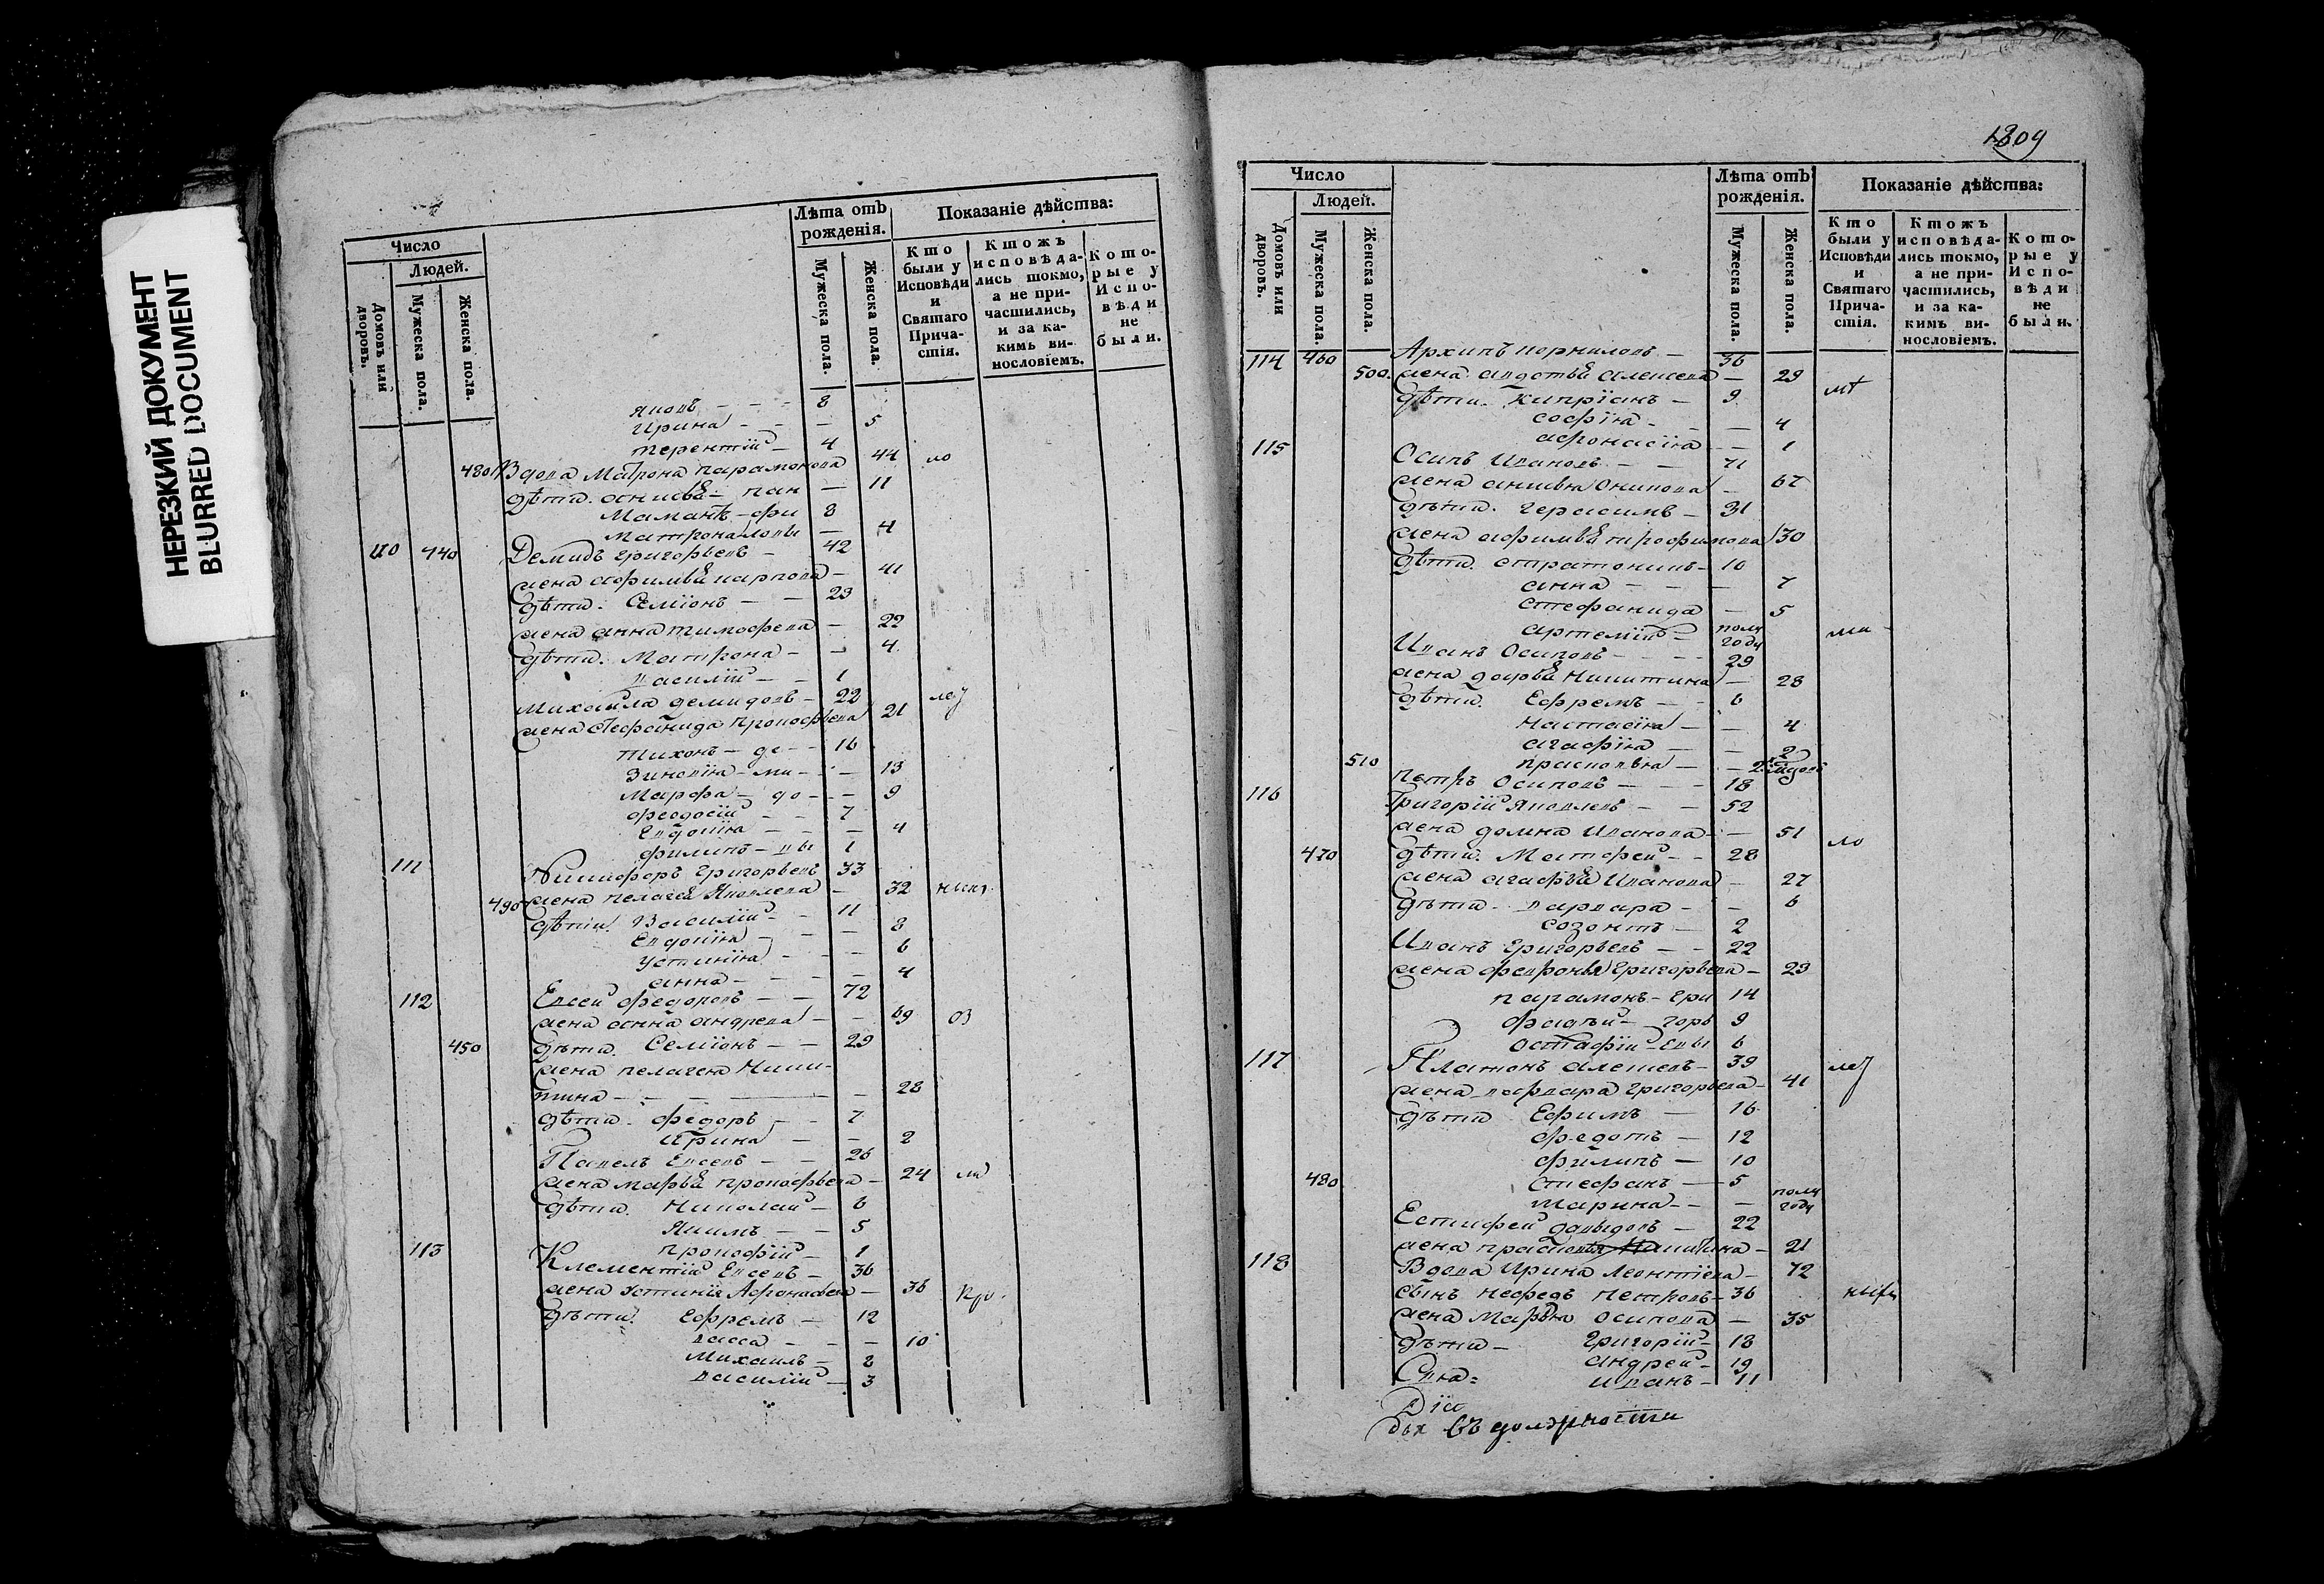 НЕРЕЗКИЙ ДОКУМЕНТ
BLURRED DOCUMENT
Число
Людей.
Домовъ или дворовъ.
Мужеска пола.
Женска пола.
Лѣта отъ рожденія.
Мужеска пола.
Женска пола.
Показаніе дѣйства:
Кто были у Исповѣди и Святаго Причастія.
Ктожъ исповѣдались токмо, а не причастились, и за какимъ винословіемъ.
Которые у Исповѣди не были.
Яковъ - - - 8
Ирина - - - 5
Терентій - 4
480 Вдова Матрона Парамонова 44 ло
дѣти. - пан - 11
8
Матрона - 4
110 440 Демидъ Григорьевъ - 42
жена Афимья Карпова - 41
дѣти: Семіонъ - - 23
жена Анна Тимофеева - 22
дѣти. Матрона - - 4
Василій - - 1
Михайла Демидовъ - 22
жена Стефанида Прокофьева 21
Тихонъ - де - - 16
Зиновія - ми - - 13
Марфа - до - - 9
Феодосій - - 7
Евдокія - - - 4
Филипъ - вы 1
111 Никифоръ Григорьевъ 33
490 жена Пелагея Яковлева - 32
дѣти. Василій - - 11
Евдокія - - - 8
Устинія - - - 6
Анна - - - 4
112 Евсей Федоровъ - - 72
жена Анна Андреева - - 69 оз
450 дѣти. Семіонъ - - 29
жена Пелагея Ники-
тина - - - - 28
дѣти. Федоръ - - 7
Ирина - - 2
Павелъ Евсевъ - - 26
жена Марья Прокофьева - 24
дѣти. Николай - 6
Якимъ - - 5
Прокофій - 1
113 Клементій Евсевъ - 36
жена Устинія Афонасьева - 36
дѣти. Ефремъ - 12
Васса - - - 10
Михаилъ -
Василій - 3
1809
Число
Людей.
Домовъ или дворовъ.
Мужеска пола.
Женска пола.
Лѣта отъ рожденія.
Мужеска пола.
Женска пола.
Показаніе дѣйства:
Кто были у Исповѣди и Святаго Причастія.
Ктожъ исповѣдались токмо, а не причастились, и за какимъ винословіемъ.
Которые у Исповѣди не были.
114 460 Архипъ Корниловъ - 36
500. жена Авдотья Алексеева - 29
дѣти. Кипріанъ - 9
Софія - - - 4
Афонасія - - 1
115 Осипъ Ивановъ - - 71
жена Анисья - 67
дѣти. Герасимъ - 31
жена Афимья Трофимова 30
дѣти. Стратоникъ - 10
Анна - - - - 7
Стефанида - 5
Артемій - полу году
Иванъ Осиповъ - - - 29
жена Дарья Никитина - 28
дѣти. Ефремъ - - 6
Настасія - - 4
Агафія - - 2
510 Прасковья - -
Петръ Осиповъ - - - 18
116 Григорій Яковлевъ - - 52
жена Домна Иванова - - 51 ло
470 дѣти. Матфей - - 28
жена Агафья Иванова - 27
дѣти. Варвара - - 6
Созонтъ - 2
Иванъ Григорьевъ - - 22
жена Февронья Григорьева - 23
Парамонъ - Гри 14
Фадѣй - горь 9
Остафій - евы 6
117 Платонъ Алексевъ - 39
жена Варвара Григорьева - 41
дѣти Ефимъ - 16
Федотъ - 12
Филипъ - 10
480 Стефанъ - 5
Марина - - - полу году
Естифей Давыдовъ - 22
жена Прасковья Никитина - 21
118 Вдова Ирина Леонтіева - 72
сынъ Нефедъ Петровъ - 36
жена Марья Осипова - 35
дѣти - Григорій - 18
Андрей - 19
Свя= Иванъ - 11
въ должности